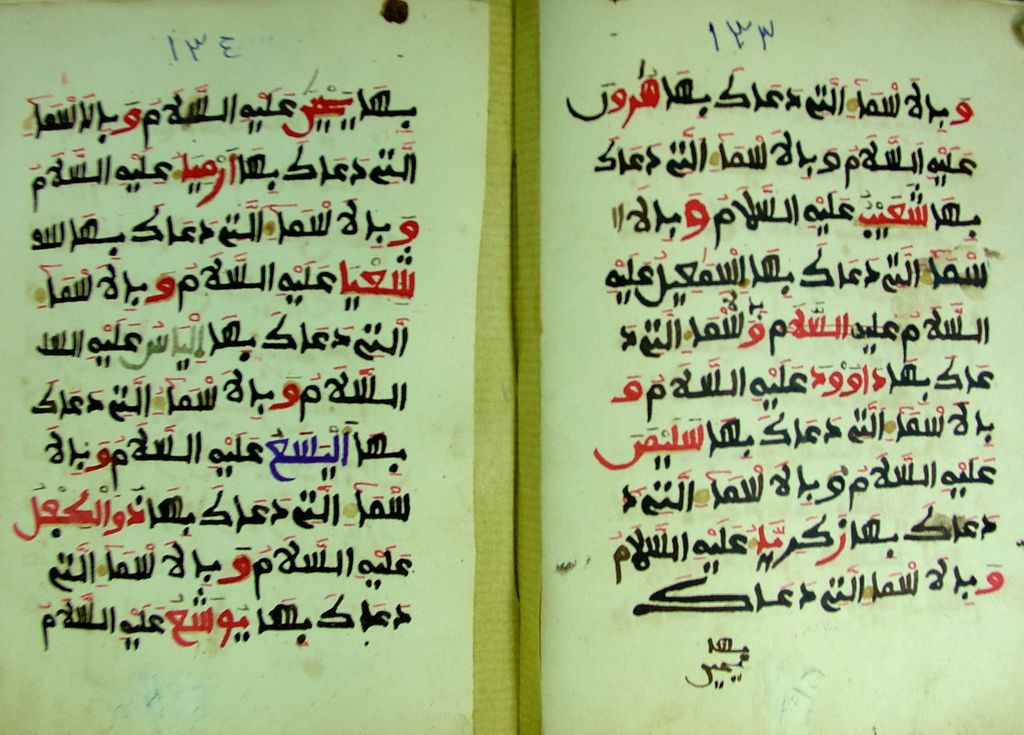 ١٣٣
وَبِالْاَسْمَآءِ الَّتِي دَعَاكَ بِهَا هٰرُونَ
عَلَيْهِ السَّلَامُ وَبِالْاَسْمَآءِ الَّتِي دَعَاكَ
بِهَا شُعَيْبُ عَلَيْهِ السَّلَامُ وَبِالْاَ
سْمَآءِ الَّتِي دَعَاكَ بِهَا اِسْمٰعِيلُ عَلَيْهِ
السَّلَامُ عليه السَّلَامُ وَبِالْاَسْمَآءِ الَّتِي دَ
عَاكَ بِهَا دَاوُودَ عَلَيْهِ السَّلَامُ وَ
بِالْاَسْمَآءِ الَّتِي دَعَاكَ بِهَا سُلَيْمٰنُ
عَلَيْهِ السَّلَامُ وَبِالْاَسْمَآءِ الَّتِي دَ
دَعَاكَ بِهَا زَكَرِيَّا عَلَيْهِ السَّلَامُ
وَبِالْاَسْمَآءِ الَّتِي دَعَاكَ
بها يحيى
١٣٤
بِهَا يَحْيٰى عَلَيْهِ السَّلَامُ وَبِالْاَسْمَآءِ
الَّتِي دَعَاكَ بِهَا اَرْمِيَا عَلَيْهِ السَّلَامُ
وَبِالْاَسْمَآءِ الَّتِي دَعَاكَ بِهَا
شَعْيَا عَلَيْهِ السَّلَامُ وَبِالْاَسْمَآءِ
الَّتِي دَعَاكَ بِهَا اِلْيَاسُ عَلَيْهِ السد
السَّلَامُ وَبِالْاَسْمَآءِ الَّتِي دَعَاكَ
بِهَا اَلْيَسَعُ عَلَيْهِ السَّلَامُ وَبِالْاَ
سْمَآءِ الَّتِي دَعَاكَ بِهَا ذُوالْكِفْلِ
عَلَيْهِ السَّلَامُ وَبِالْاَسْمَآءِ الَّتِي
دَعَاكَ بِهَا يُوشَعُ عَلَيْهِ السَّلَامُ